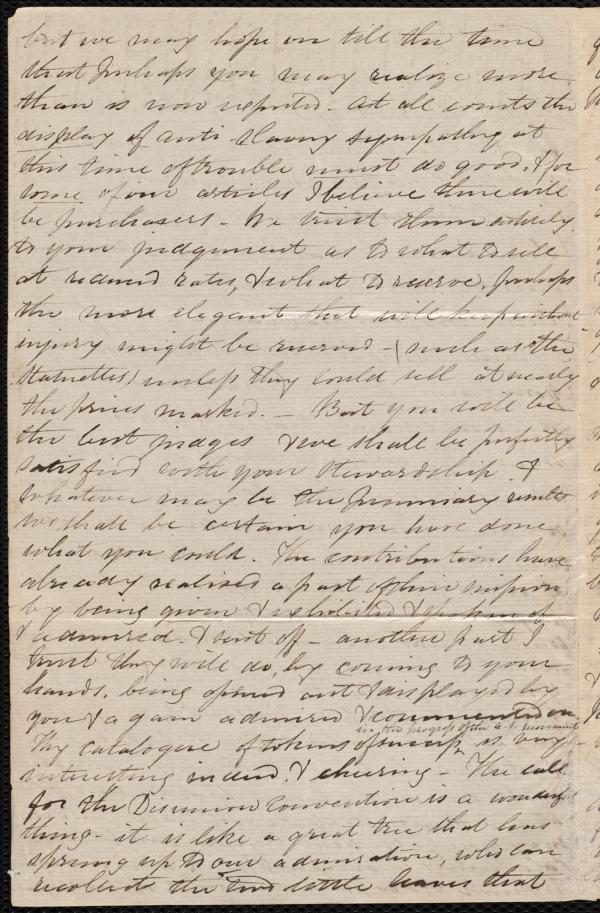 but we may hope on till the time
that perhaps you may realize more
than is now reported - At all events the
display of anti-slavery sympathy at
this time of trouble must do good, & for
some of our articles I believe there will
be purchasers - We trust them entirely
to your judgment as to what to sell
at reduced rates, & what to reserve, perhaps
the more elegant that will keep without
injury might be reserved - (such as the
Statuettes) unless they could sell at nearly
the prices marked. - But you will be
the best judges & we shall be perfectly
satisfied with your stewardship &
whatever may be the pecuniary results
we shall be certain you have done
what you could. The contributions have
already realised a part of their mission
by being given & exhibited & spoken of
& admired & sent off - another part I
trust they will do, by coming to your
hands, being opened out & displayed by
you & again admired & commented on.
in the progress of the a. s. movement
Thy catalogue of tokens of success, is very
interesting indeed, & cheering - The call
for the Disunion Convention is a wonderful
thing - it is like a great tree that has
sprung up to our admiration, who can
recollect the two little leaves that